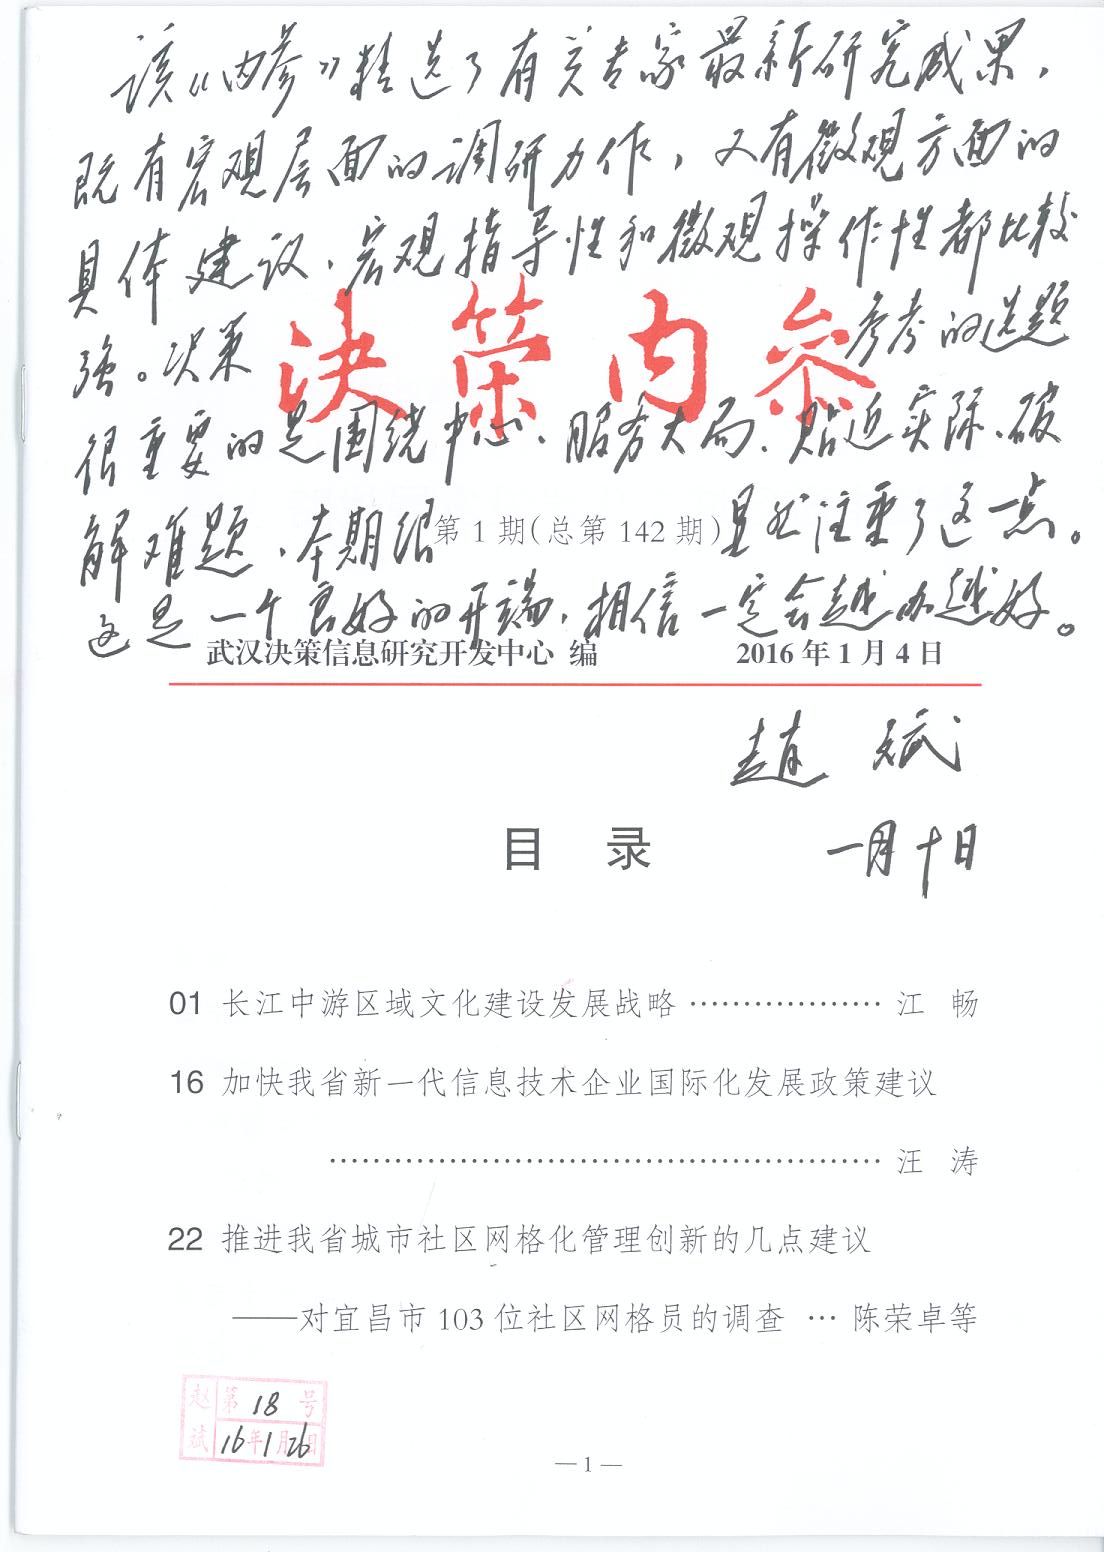 该《内参》精选了有关专家最新研究成果，
既有宏观层面的调研力作，又有微观方面的
具体建议，宏观指导性和微观操作性都比较
强。决策参考的选题
决策内参
很重要的是围绕中心、服务大局、贴近实际、破
解难题，本期很显然注重了这一点。
第1期(总第142期)
这是一个良好的开端，相信一定会越办越好。
武汉决策信息研究开发中心 编 2016年1月4日
赵斌
一月十日
目 录
01 长江中游区域文化建设发展战略 ……………… 江 畅
16 加快我省新一代信息技术企业国际化发展政策建议
…………………………………………… 汪 涛
22 推进我省城市社区网格化管理创新的几点建议
——对宜昌市103位社区网格员的调查 … 陈荣卓等
赵斌 第18号
16年1月26日
— 1 —